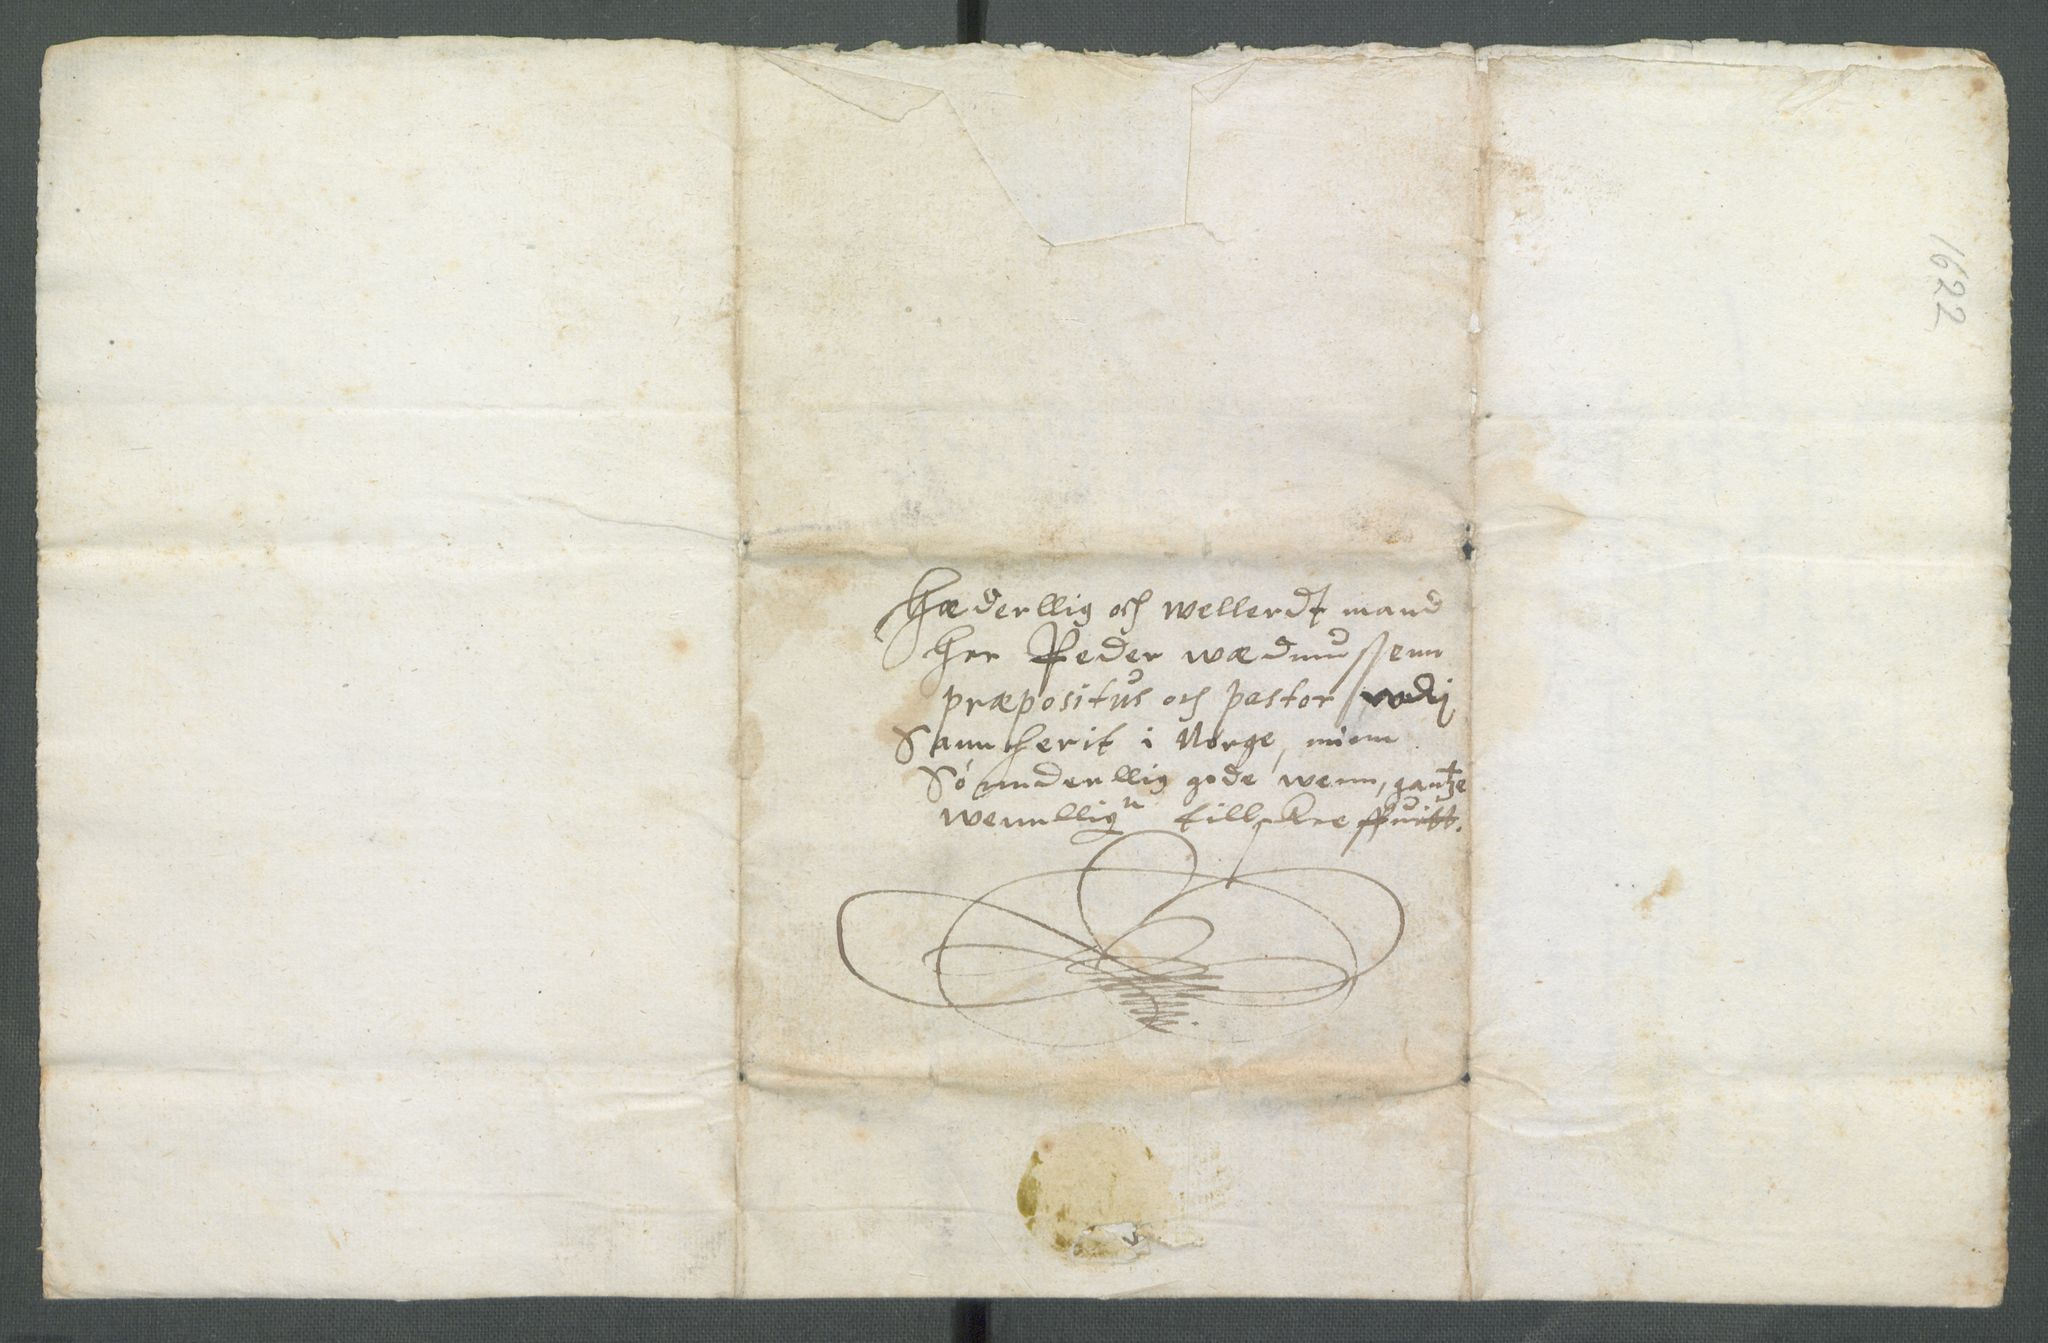 Hæderllig och wellerdt mand
Her Peder wædmussenn
præpositus och pastor wdi
Sannherit i Norge, minn
Sönnderllig gode wenn, gantze
wennllign till
1622